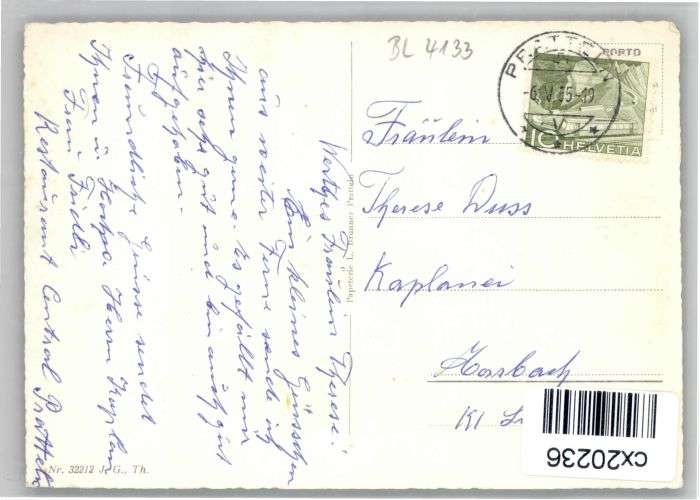 BL 4133
PORTO
PRATTELN
-6.IV.55-19
10 HELVETIA
Fräulein
Therese Duss
Kaplanei
Marbach
Kt
Wertges Fräulein Therese!
Ein kleines Grüsschen
aus weiter Ferne sende ich
Ihnen gerne. Es gefällt mir
hier sehr gut und bin auch gut
aufgehoben.
Freundliche Grüsse sendet
Ihnen u. Hochw. Herrn Kaplan
Frau Fridli
Restaurant Central Pratteln
Papeterie L. Brunner Pratteln
Nr. 32212 J. G., Th.
cx20236